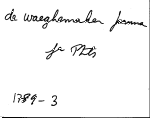 de waeghemaker Joanna
fa Phls
1789-3